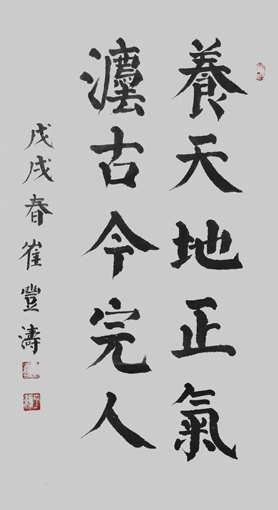 養天地正氣
灋古今完人
戊戌春崔豐濤